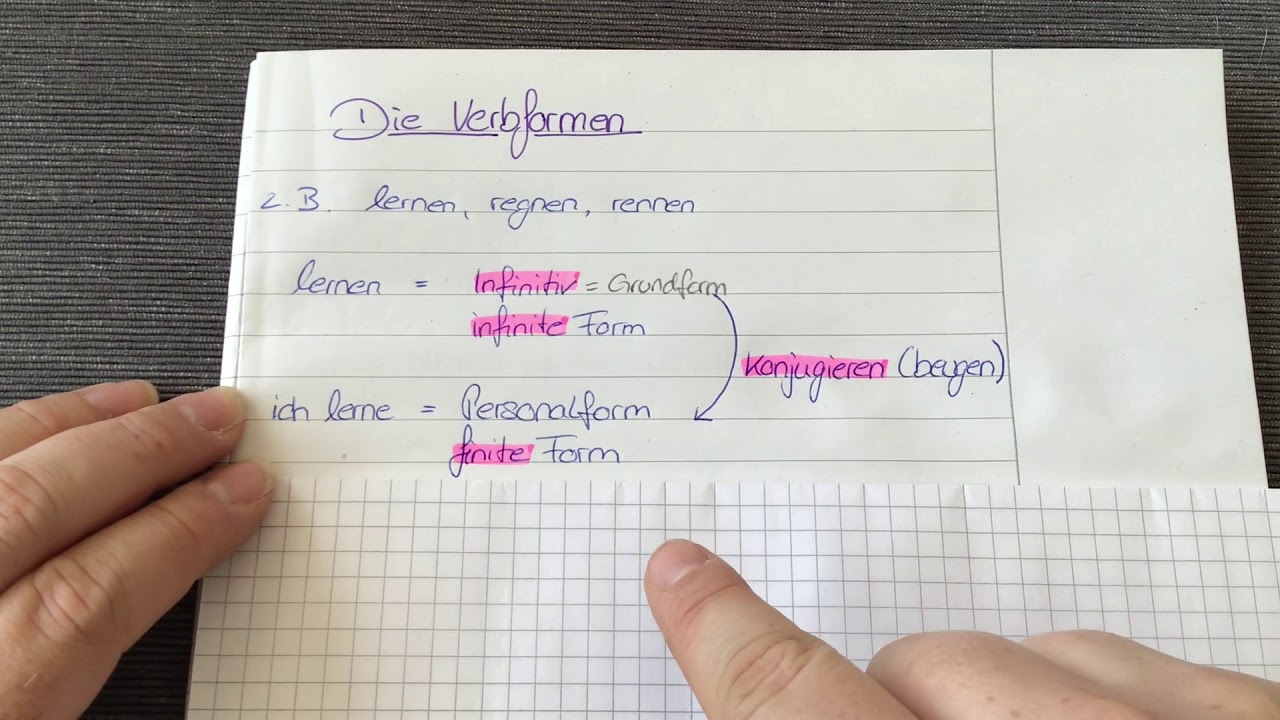 Die Verbformen
z.B. lernen, regnen, rennen
lernen = Infinitiv = Grundform
infinite Form
konjugieren (beugen)
ich lerne = Personalform
finite Form